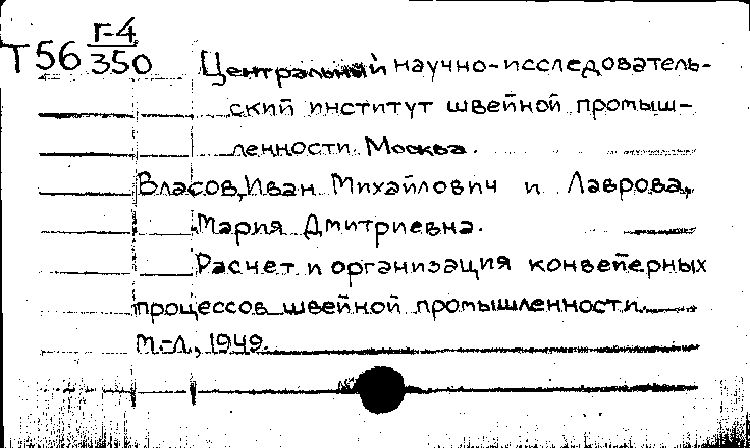 Т56 Г-4/350
Центральный научно-исследователь-
ский институт швейной промыш-
ленности. Москва.
Власов, Иван Михайлович и Лаврова,
Мария Дмитриевна.
Расчет и организация конвейерных
процессов швейной промышленности.
М.-Л., 1949.